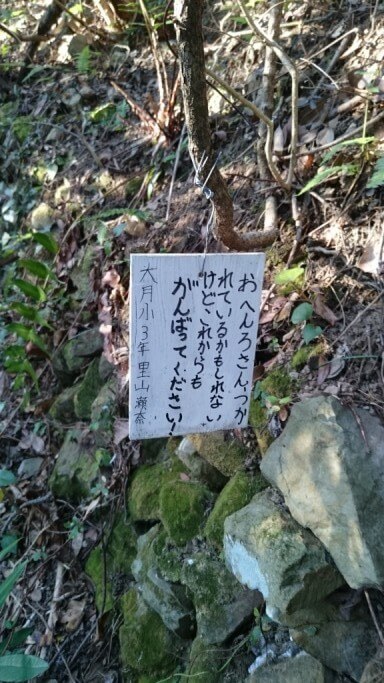 おへんろさん、つか
れているかもしれない
けどこれからも
がんばってください!
大月小3年里山瀬奈